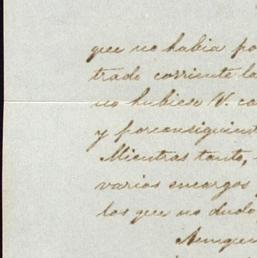 que no habia po
trado corriente la
no hubiese V. co
y por consiguient
Mientras tanto,
varios encargos
los que no dudo
Aunque